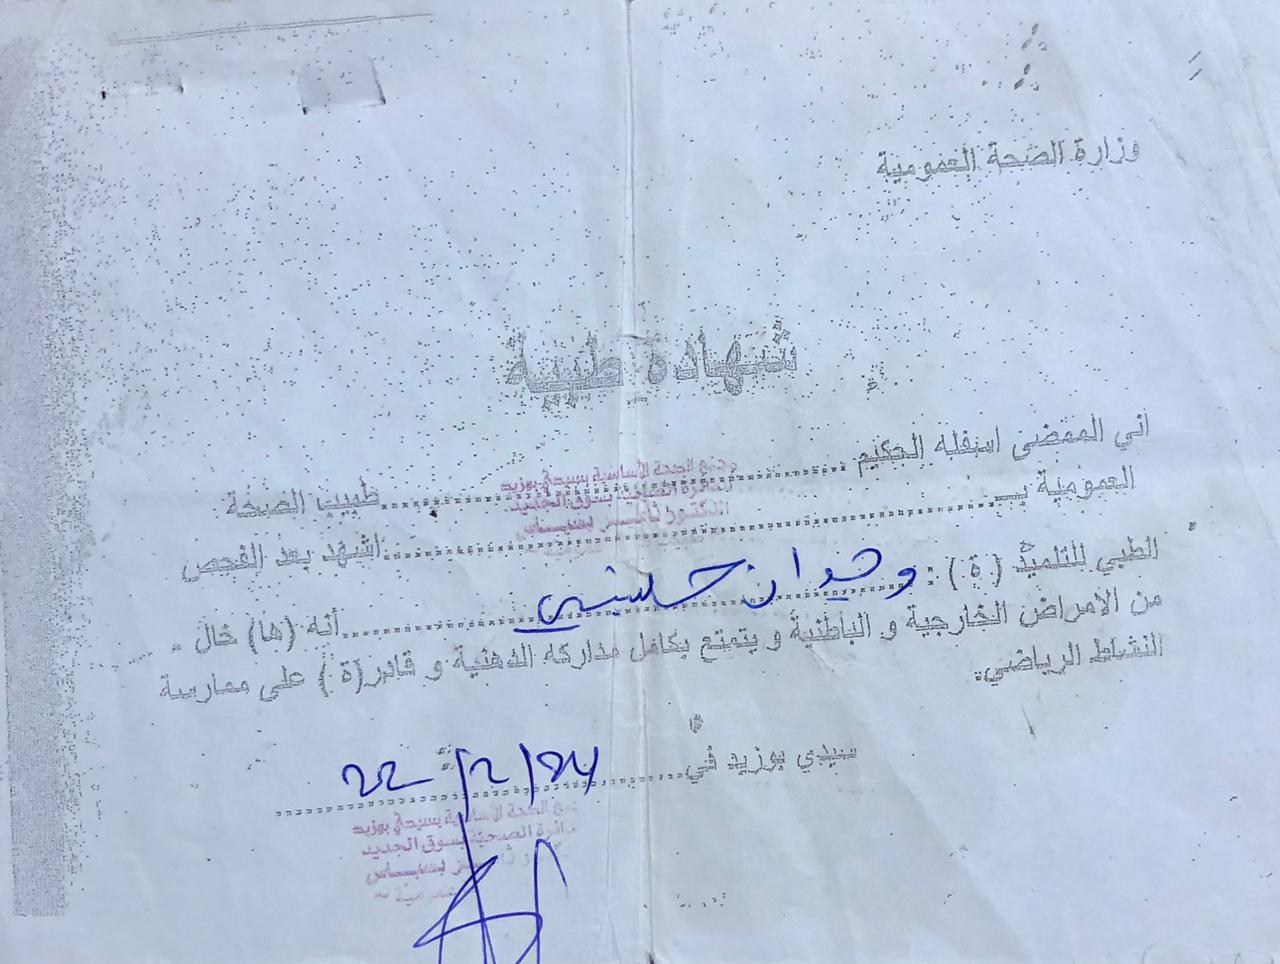 وزارة الصحة العمومية
شهادة طبية
اني الممضي اسفله الحكيم طبيب الصحة
مجمع الصحة الأساسية بسيدي بوزيد
الدائرة الصحية بسوق الجديد
الدكتور
العمومية بـ اشهد بعد الفحص
الطبي للتلميذ (ة) : حسيني أنه (ها) خال
من الامراض الخارجية و الباطنية و يتمتع بكامل مداركه الذهنية و قادر(ة) على ممارسة
النشاط الرياضي.
سيدي بوزيد في 22/2/24
مجمع الصحة الأساسية بسيدي بوزيد
الدائرة الصحية بسوق الجديد